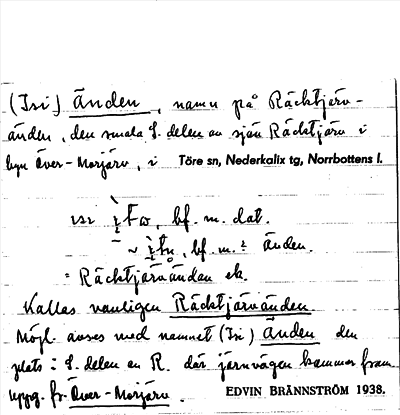 (Isi) Änden, namn på Räcktjärv-
änden, den smala S. delen av sjön Räcktjärv i
byn Över-Morjärv, i Töre sn, Nederkalix tg, Norrbottens l.
isi bf. m. dat.
~ bf. m. = änden.
= Räcktjärvändan ek.
Kallas vanligen Räcktjärvänden
Möjl. avses med namnet (Isi) Änden den
plats i S. delen av R. där järnvägen kommer fram
uppg. fr. Över-Morjärv. EDVIN BRÄNNSTRÖM 1938.